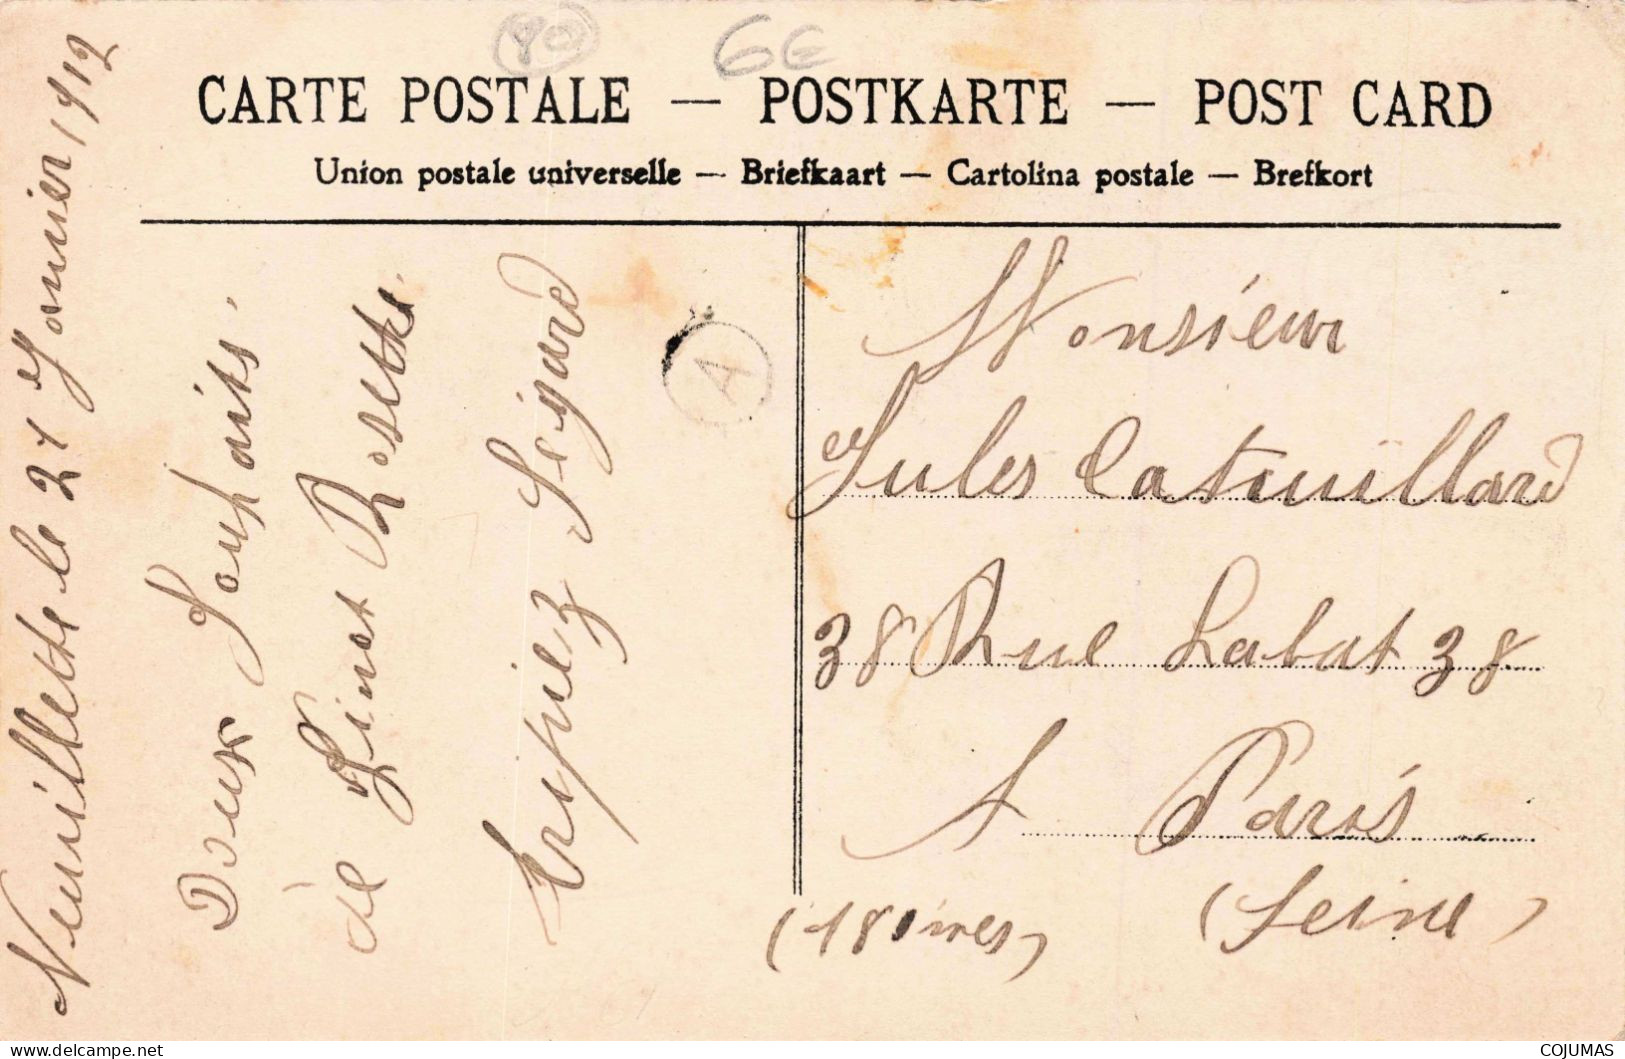 80
6E
CARTE POSTALE — POSTKARTE — POST CARD
Union postale universelle — Briefkaart — Cartolina postale — Brefkort
Neuillette le 21 Janvier 1912
Doux Souhaits.
de Linet Rosette.
Segard
A
Monsieur
Jules Catouillard
38 Rue Labat 38
A Paris
(Seine)
delcampe.net
COJUMAS